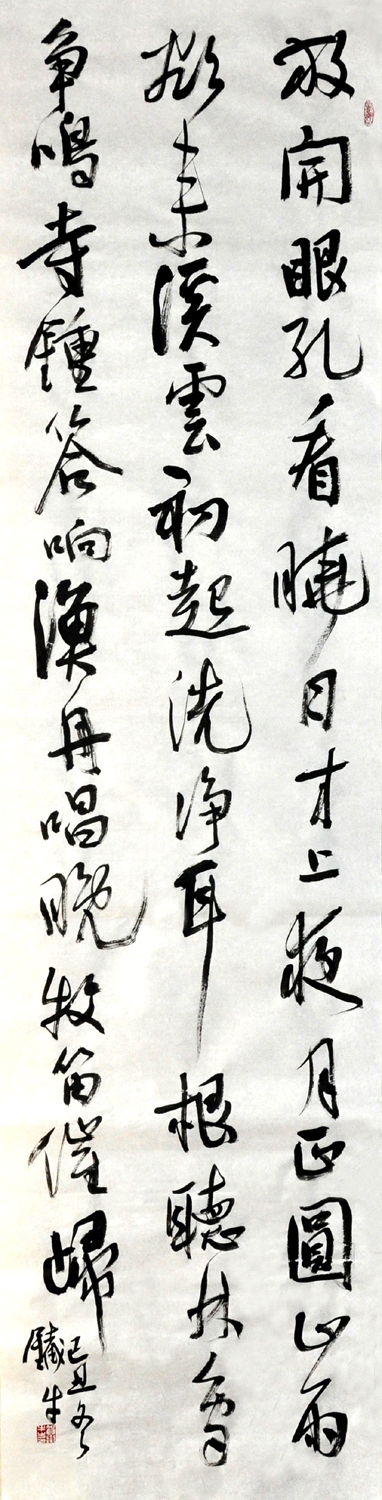 放開眼孔看曉日才上夜月正圓山雨
欲来溪雲初起洗净耳根聽林鳥
争鳴寺鐘答响漁舟唱晚牧笛催歸
己丑冬
鐵牛